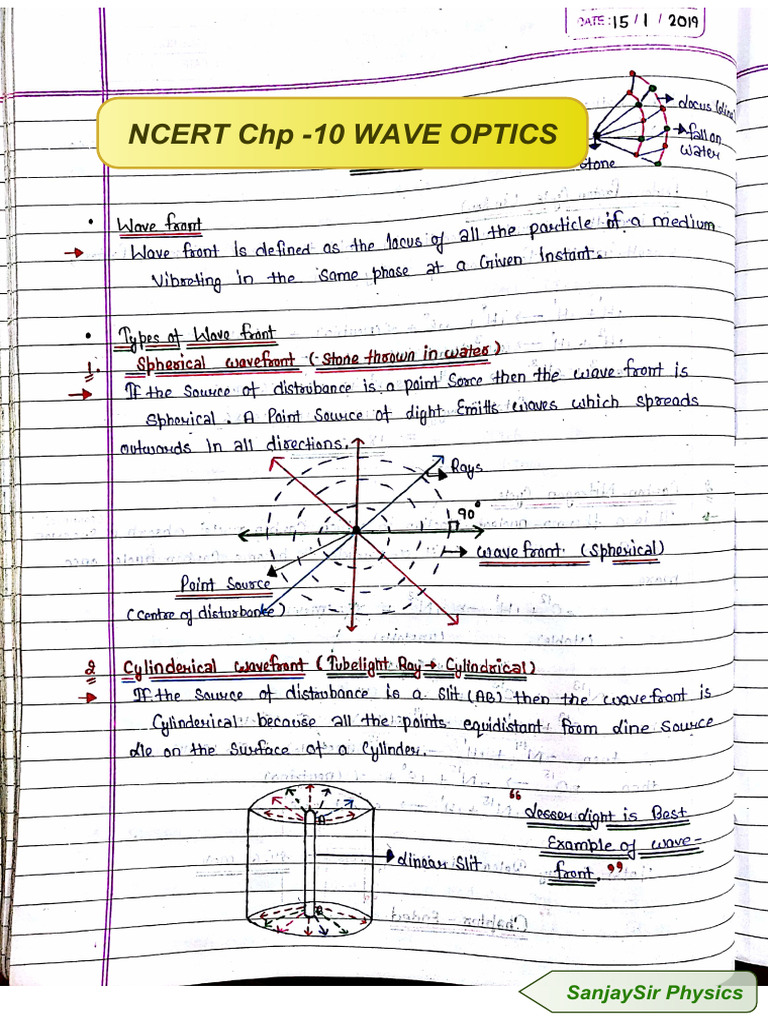 DATE: 15 / 1 / 2019
NCERT Chp -10 WAVE OPTICS
Locus (line)
fall on
water
Stone
• Wave front
→ Wave front is defined as the locus of all the particle of a medium
Vibrating in the same phase at a Given instant.
• Types of Wave front
1. Spherical wavefront (Stone thrown in water)
→ If the source of distrubance is a point Sorce then the wave front is
Spherical. A Point Source of light Emitts waves which spreads
outwards in all directions.
Rays
90°
→ wavefront (Spherical)
Point Source
(Centre of disturbance)
2 Cylinderical wavefront (Tubelight Ray → Cylindrical)
→ If the source of distrubance is a Slit (AB) then the wavefront is
Cylinderical because all the points equidistant from line source
lie on the surface of a Cylinder.
A
Linear Slit
B
“ Lesser light is Best
Example of wave-
front. ”
SanjaySir Physics